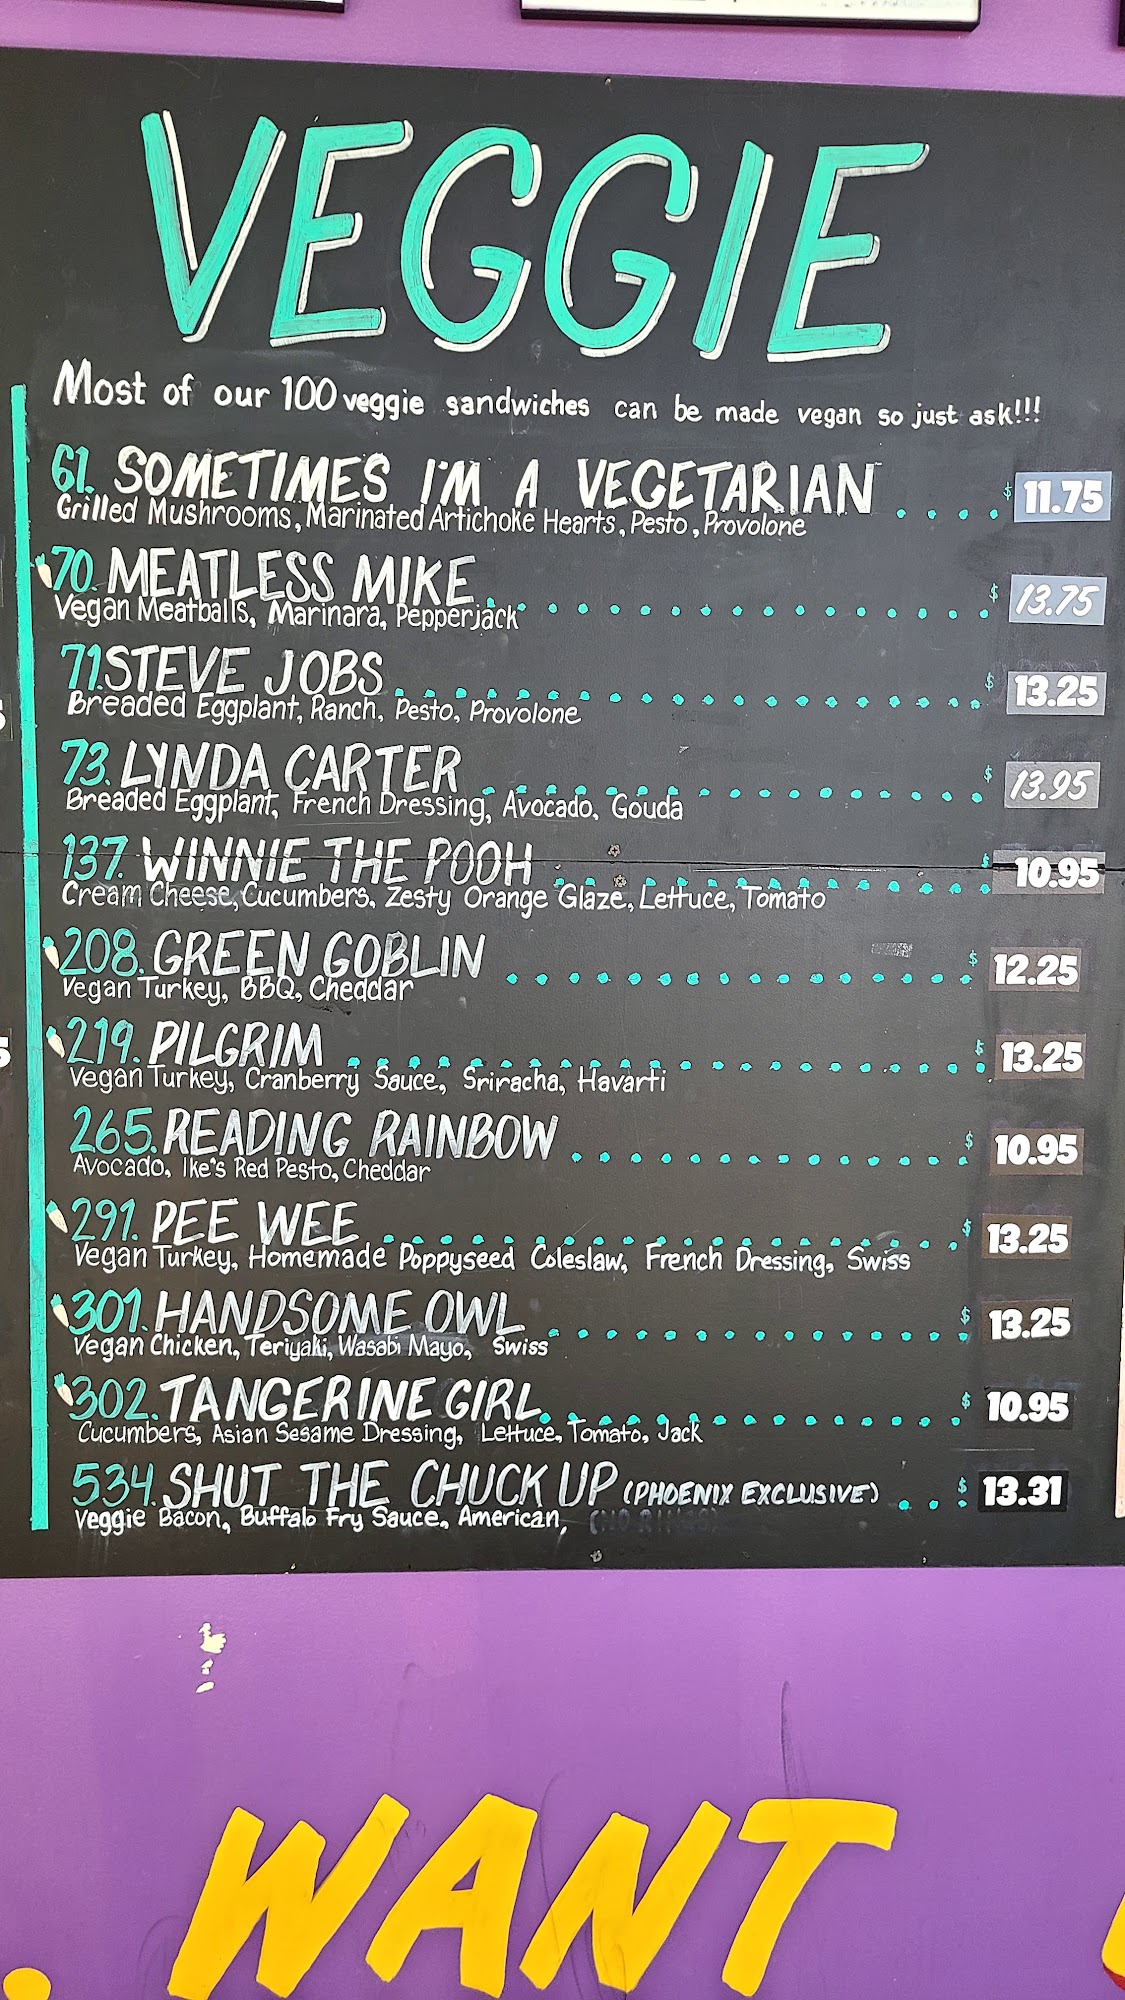 VEGGIE
Most of our 100 veggie sandwiches can be made vegan so just ask!!!
61. SOMETIMES I'M A VEGETARIAN . . . . $ 11.75
Grilled Mushrooms, Marinated Artichoke Hearts, Pesto, Provolone
70. MEATLESS MIKE $ 13.75
Vegan Meatballs, Marinara, Pepperjack
71. STEVE JOBS $ 13.25
Breaded Eggplant, Ranch, Pesto, Provolone
73. LYNDA CARTER $ 13.95
Breaded Eggplant, French Dressing, Avocado, Gouda
137. WINNIE THE POOH $ 10.95
Cream Cheese, Cucumbers, Zesty Orange Glaze, Lettuce, Tomato
208. GREEN GOBLIN $ 12.25
Vegan Turkey, BBQ, Cheddar
219. PILGRIM $ 13.25
Vegan Turkey, Cranberry Sauce, Sriracha, Havarti
265. READING RAINBOW $ 10.95
Avocado, Ike's Red Pesto, Cheddar
291. PEE WEE $ 13.25
Vegan Turkey, Homemade Poppyseed Coleslaw, French Dressing, Swiss
301. HANDSOME OWL $ 13.25
Vegan Chicken, Teriyaki, Wasabi Mayo, Swiss
302. TANGERINE GIRL $ 10.95
Cucumbers, Asian Sesame Dressing, Lettuce, Tomato, Jack
534. SHUT THE CHUCK UP (PHOENIX EXCLUSIVE) $ 13.31
Veggie Bacon, Buffalo Fry Sauce, American,
. WANT